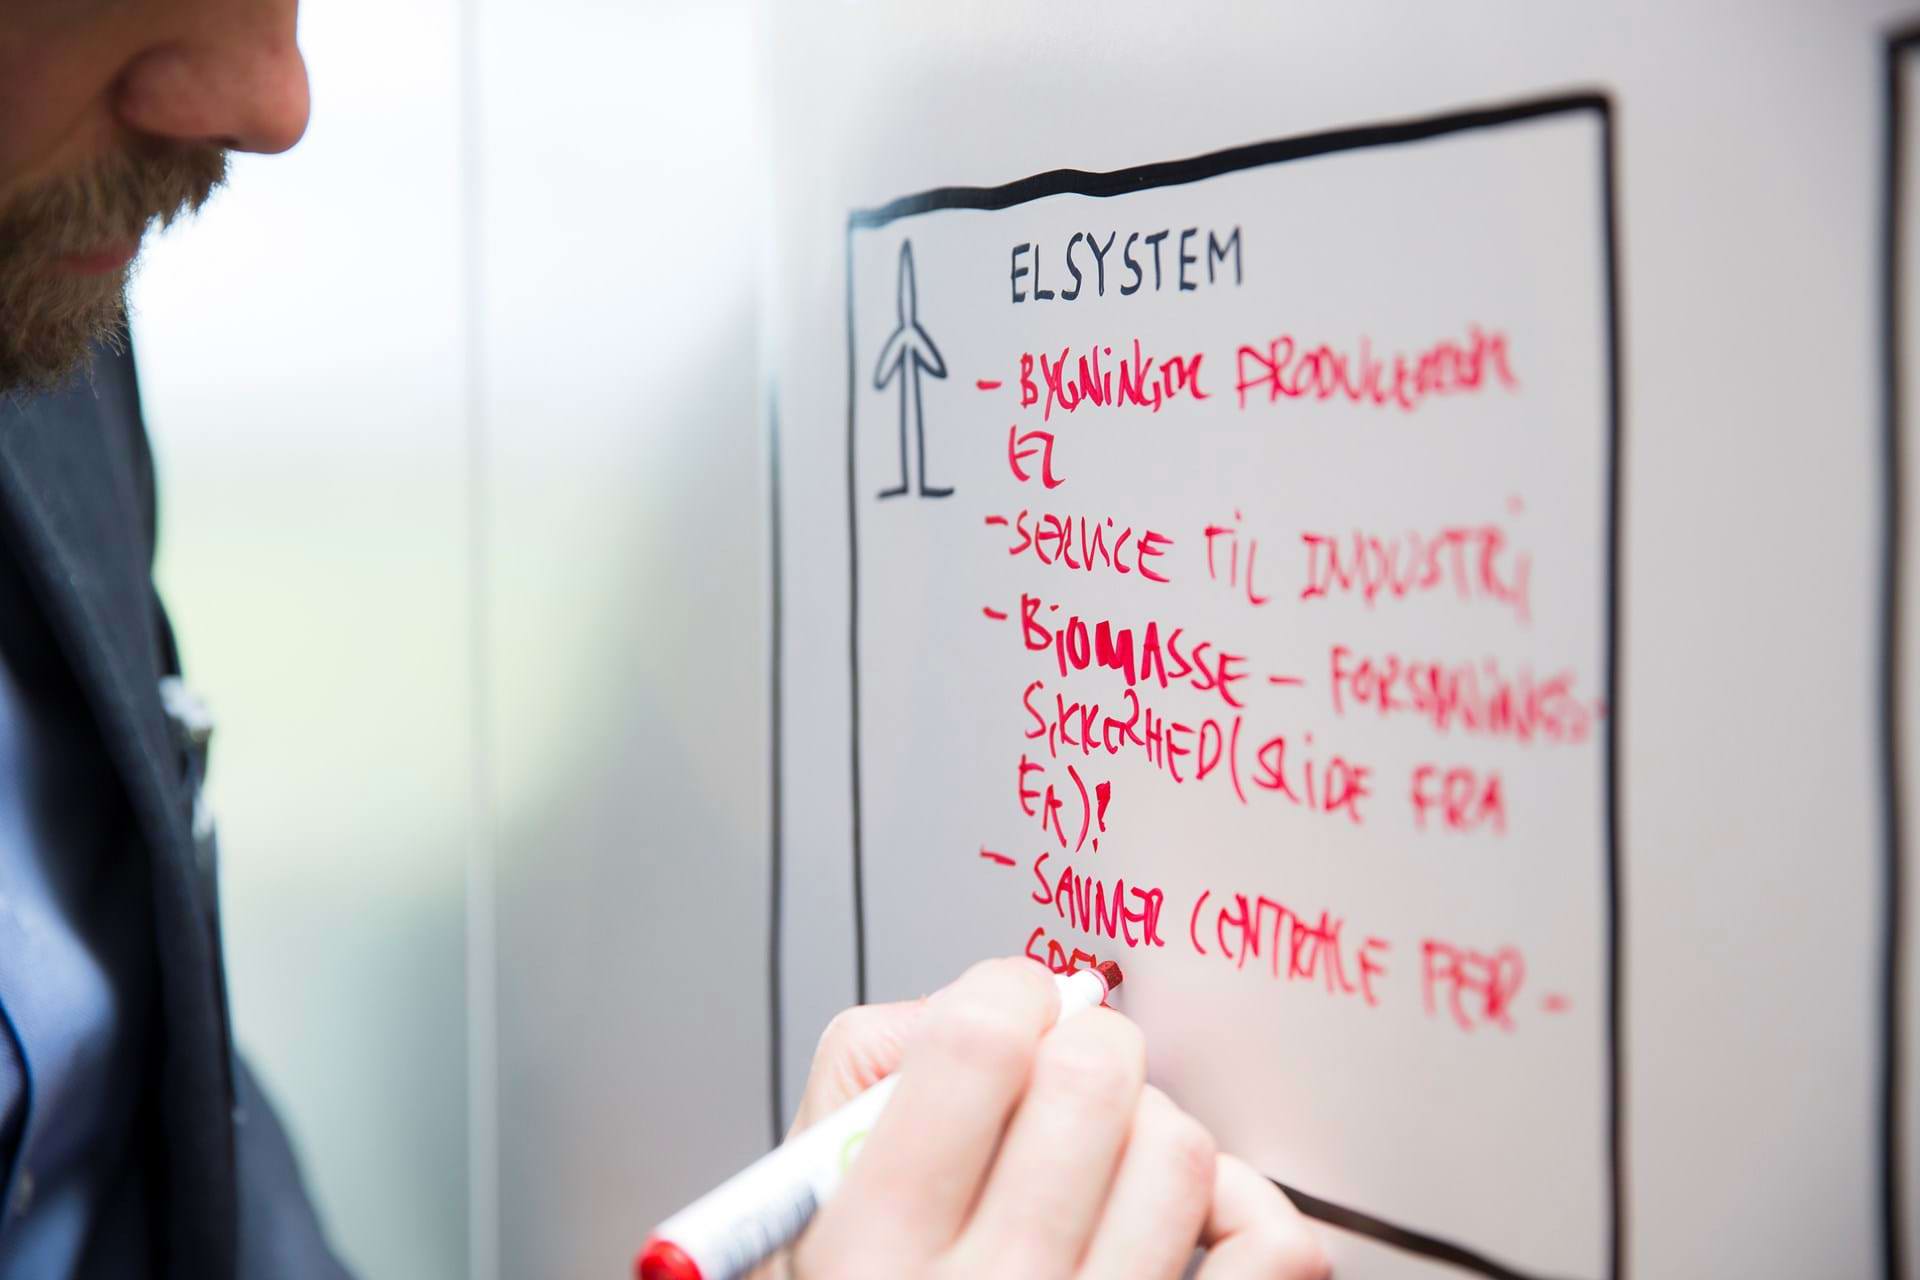 ELSYSTEM
- BYGNINGER PRODUCERER
EL
- SERVICE TIL INDUSTRI
- BIOMASSE - FORSYNINGS-
SIKKERHED (SLIDE FRA
EA)!
- SAVNER CENTRALE PER-
SPE